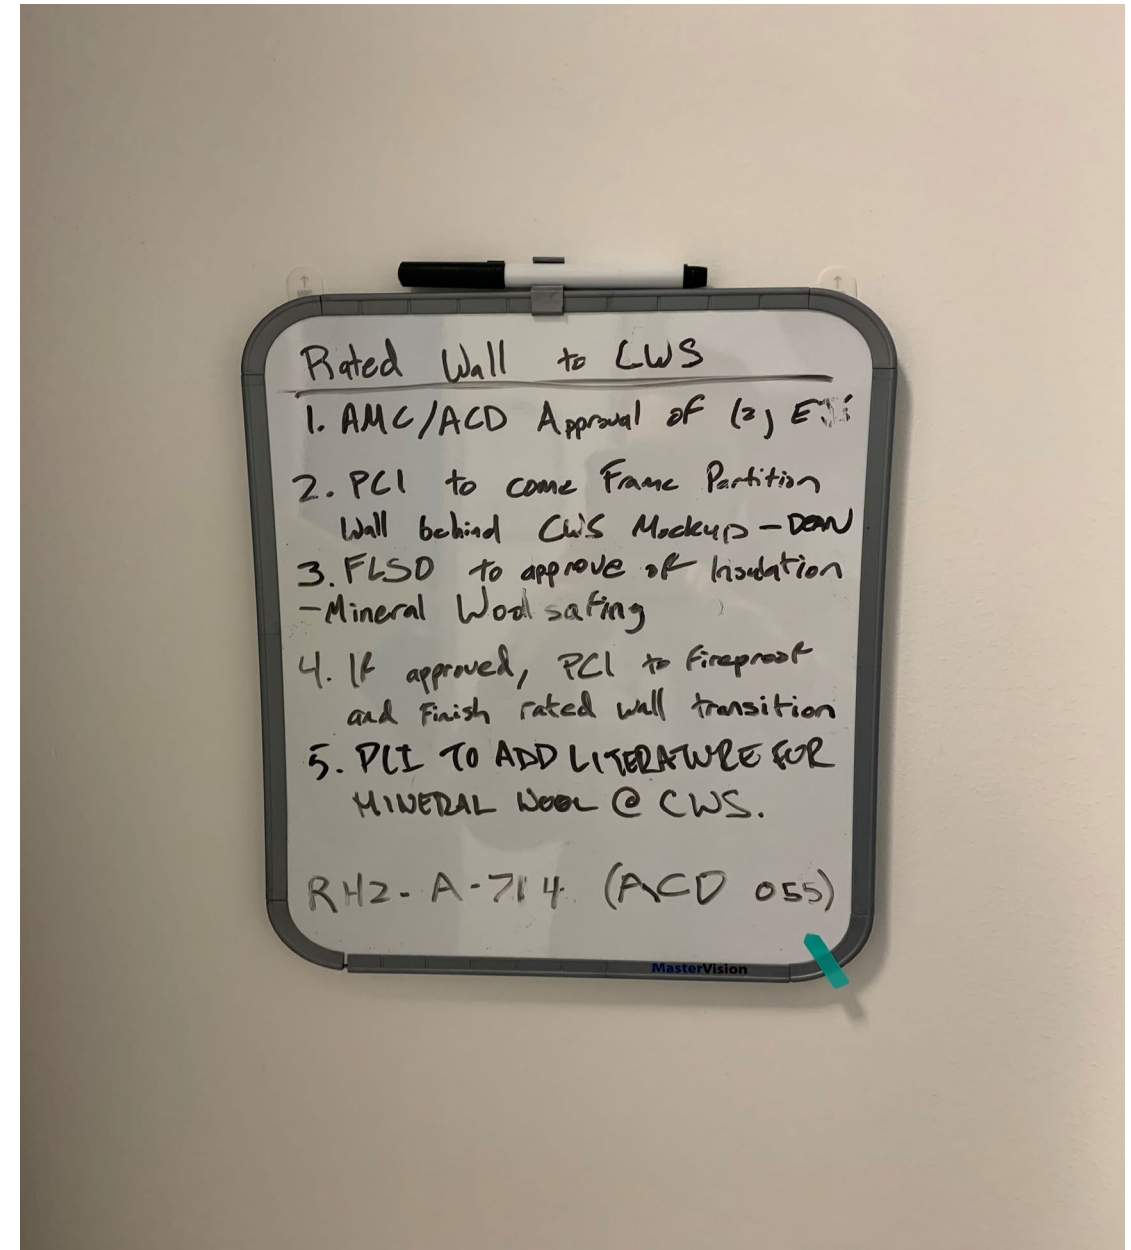 Rated Wall to CWS
1. AMC/ACD Approval of (2)
2. PCI to come Frame Partition
Wall behind CWS Mockup - DEAN
3. FLSO to approve of Insulation
- Mineral Wool safing
4. If approved, PCI to fireproof
and Finish rated wall transition
5. PCI TO ADD LITERATURE FOR
MINERAL WOOL @ CWS.
RH2-A-714 (ACD 055)
MasterVision